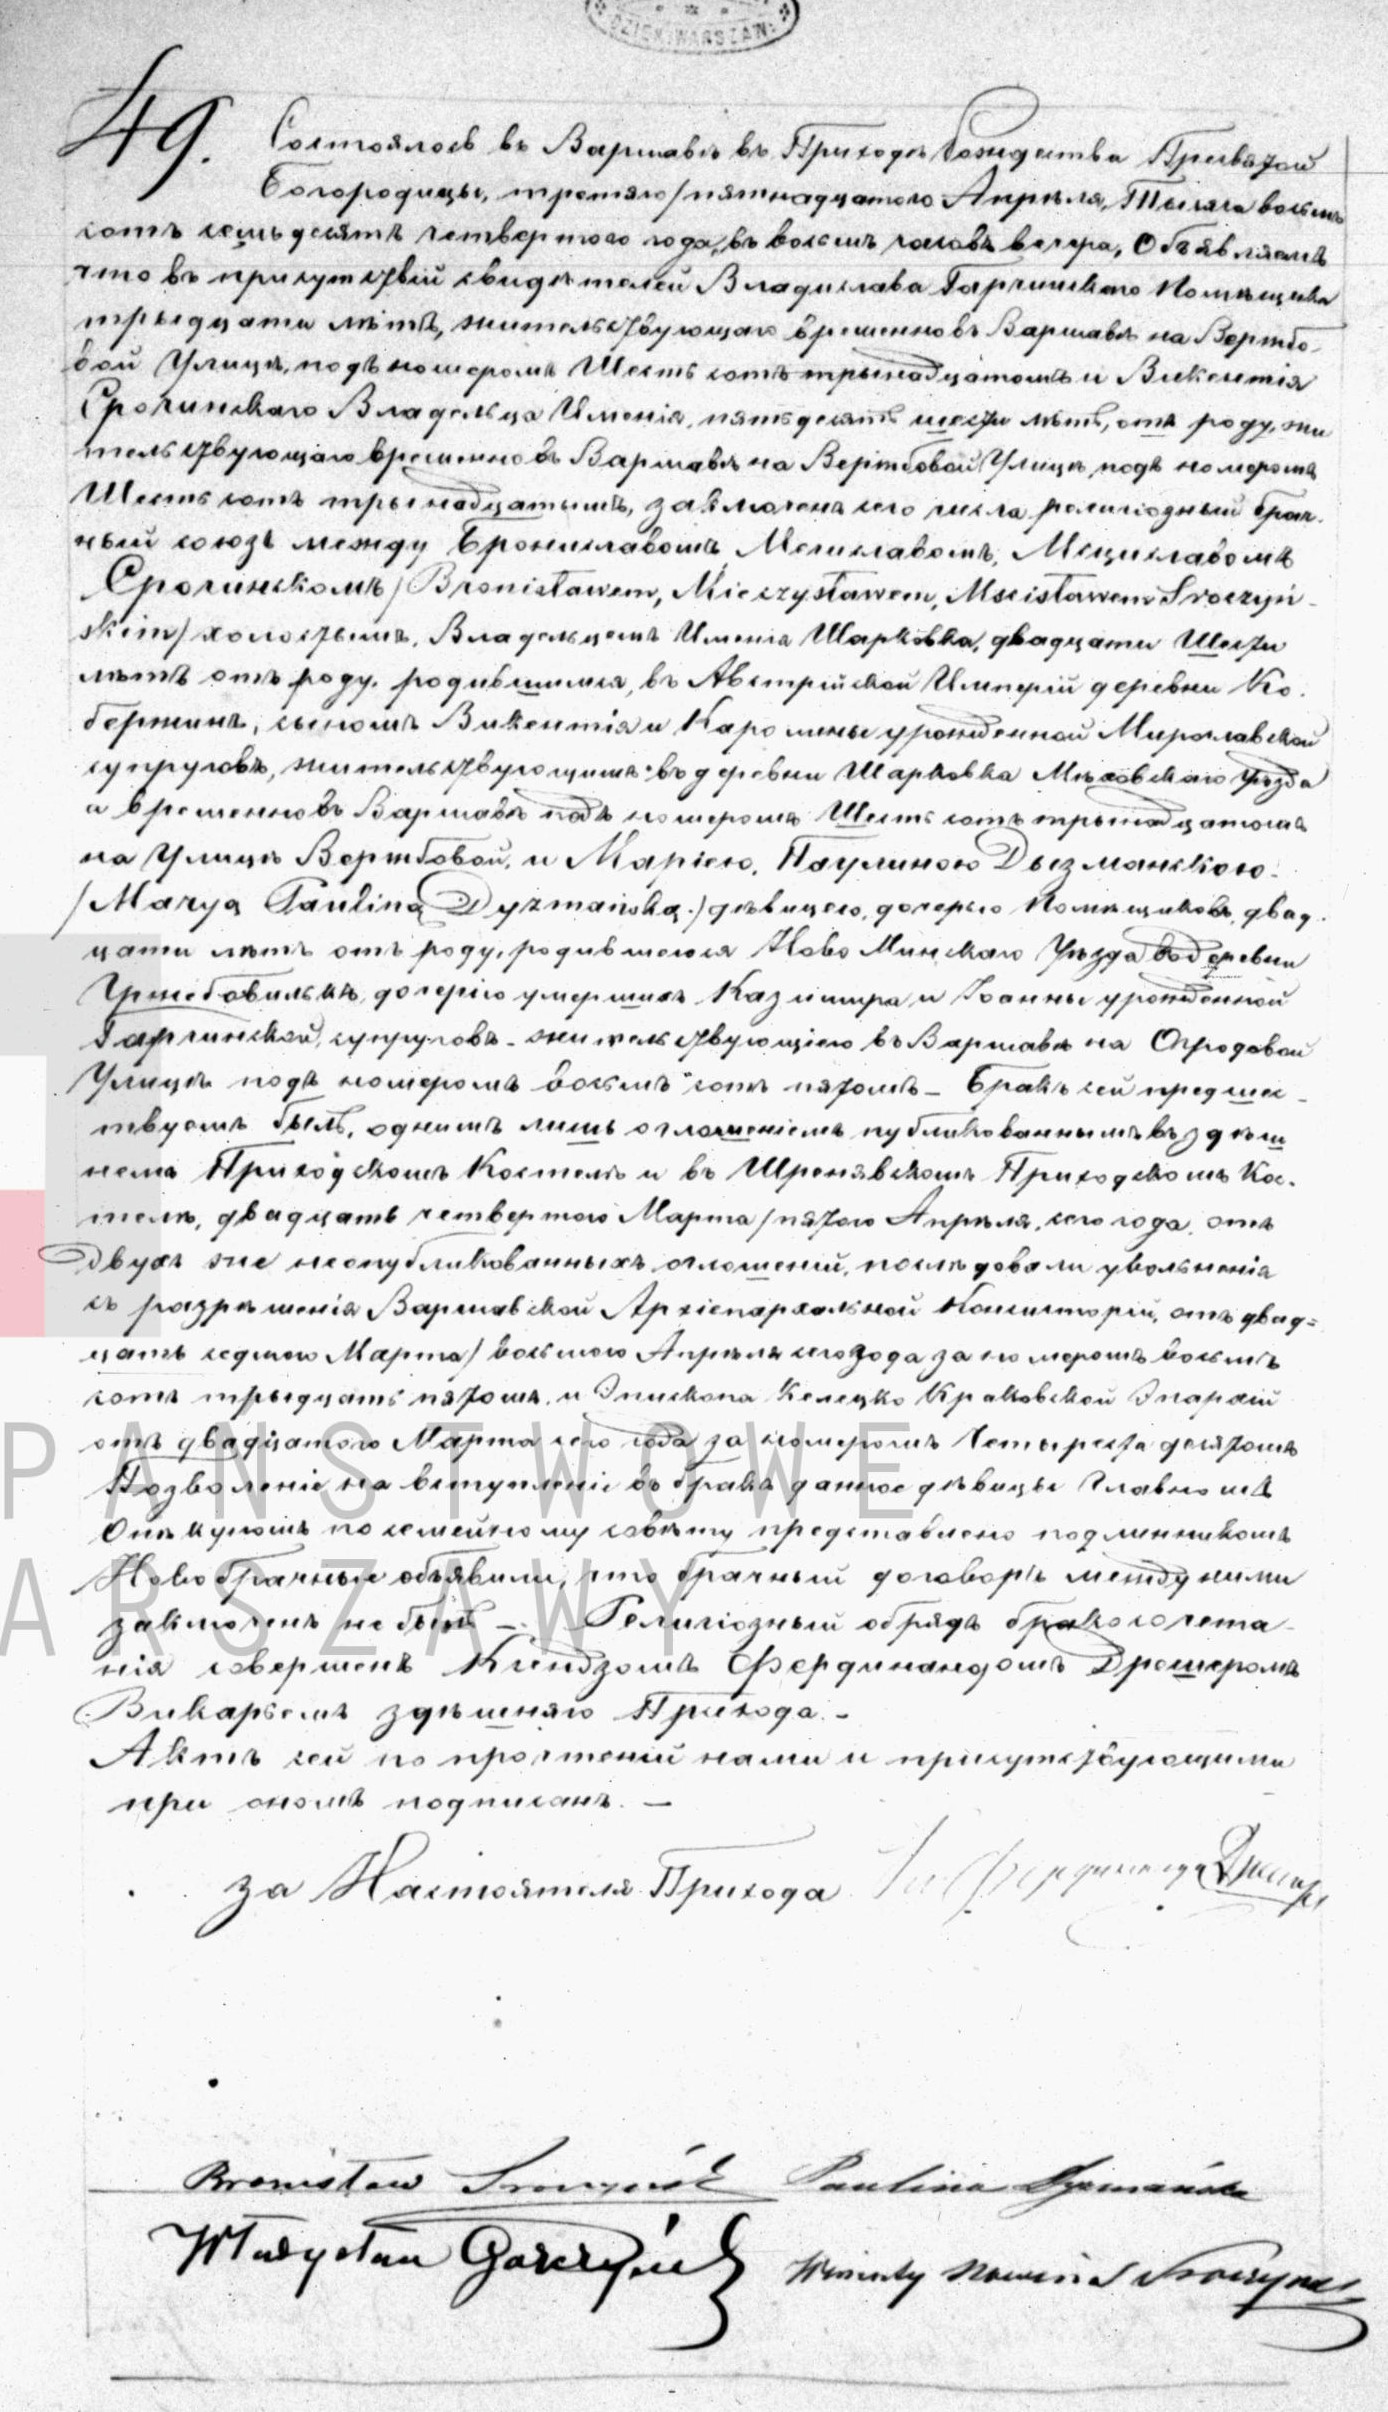 DZIEK. WARSZAW.
49.
Состоялось въ Варшавѣ въ Приходѣ Рождества Пресвятой
Богородицы, третяго/пятнадцатого Апрѣля, Тысяча восемь
сотъ семьдесятъ четвертого года, въ восемь часовъ вечера, Объявляемъ
что въ присутствій свидѣтелей Владислава Гарчинского Помѣщика
трыдцати лѣтъ, жительствующаго временно въ Варшавѣ на Вержбо-
вой Улицѣ, подъ номеромъ Шесть сотъ трынадцатомъ и Викентія
Срочинскаго Владельца Именія, пятьдесятъ шести лѣтъ, отъ роду, жи
тельствующаго временно въ Варшавѣ на Вержбовой Улицѣ, подъ номеромъ
Шесть сотъ трынадцатымъ, заключенъ сего числа религіозный брач-
ный союзъ между Брониславомъ, Мечиславомъ, Мсциславомъ
Срочинскомъ /Bronisławem, Mieczysławem, Mscisławem Sroczyń-
skim/ холостымъ, Владельцемъ Именія Шарковка, двадцати Шести
лѣтъ отъ роду, родившимся, въ Австрійской Имперій деревни Ко-
бержинъ, сыномъ Викентія и Каролины урожденной Мирославской
супруговъ, жительствующимъ въ деревни Шарковка Мѣховскаго Уѣзда
и временно въ Варшавѣ подъ номеромъ Шесть сотъ трынадцатомъ
на Улицѣ Вержбовой, и Маріею, Паулиною Дызманскою.
/Maryą Pauliną Dyzmańską./ дѣвицею, дочерью Помѣщиковъ, двад-
цати лѣтъ отъ роду, родившеюся Ново Минскаго Уѣзда въ деревни
дочерію умершихъ Казимира и Іоанны урожденной
Гарчинской, супруговъ - жительствующіею въ Варшавѣ на Огродовой
Улицѣ подъ номеромъ восемь сотъ пятомъ - Бракъ сей предшес-
твуемъ былъ, однимъ лишь оглошеніемъ публикованнымъ въ здѣш
немъ Приходскомъ Костелѣ и въ Шренявскомъ Приходскомъ Кос-
телѣ, двадцать четвертого Марта/пятого Апрѣля, сего года, отъ
Двухъ же неопубликованныхъ оглошеній, послѣдовали увольненія
съ разрѣшенія Варшавской Архіепархальной Консисторій, отъ двад=
цать седмого Марта/восьмого Апрѣля сего года за номеромъ восемь
сотъ трыдцать пятомъ, и Эпископа Келецко Краковской Эпархій
отъ двадцатого Марта сего года за номеромъ Четыреста десятомъ
Позволеніе на вступленіе въ бракъ данное дѣвицы Главномъ
Опѣкуномъ по семейному совѣту представлено подлинникомъ
Новобрачные объявили, что брачный договоръ между ними
заключенъ не былъ -. Религіозный обрядъ бракосочета-
нія совершенъ Ксендзомъ Фердинандомъ Дрешеромъ
Викарьемъ здѣшняго Прихода. -
Актъ сей по прочтеній нами и присутствующими
при ономъ подписанъ. -
за Настоятеля Прихода Фердинандъ Дрешеръ
Bronisław Sroczyński Paulina Dyzmańska
Władysław Garczyński
Wincenty Sroczyński
PAŃSTWOWE
ARSZAWY